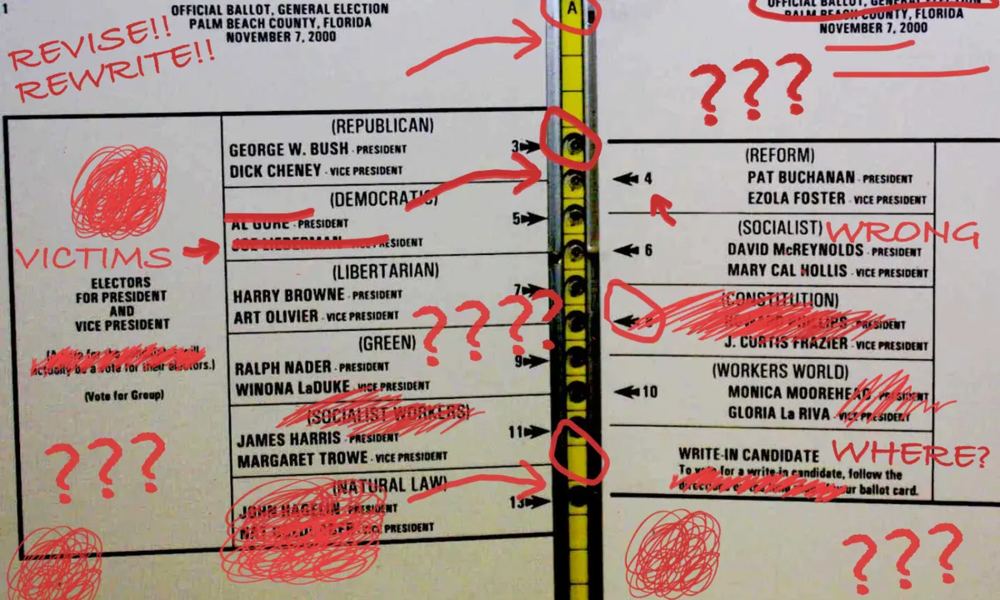 1
OFFICIAL BALLOT, GENERAL ELECTION
PALM BEACH COUNTY, FLORIDA
NOVEMBER 7, 2000
REVISE!!
REWRITE!!
A
OFFICIAL BALLOT, GENERAL ELECTION
PALM BEACH COUNTY, FLORIDA
NOVEMBER 7, 2000
???
VICTIMS
ELECTORS
FOR PRESIDENT
AND
VICE PRESIDENT
actually be a vote for their electors.)
(Vote for Group)
???
(REPUBLICAN)
GEORGE W. BUSH - PRESIDENT
DICK CHENEY - VICE PRESIDENT
3
(DEMOCRATIC)
AL GORE - PRESIDENT
PRESIDENT
5
(LIBERTARIAN)
HARRY BROWNE - PRESIDENT
ART OLIVIER - VICE PRESIDENT
7
????
(GREEN)
RALPH NADER - PRESIDENT
WINONA LaDUKE - VICE PRESIDENT
9
(SOCIALIST WORKERS)
JAMES HARRIS - PRESIDENT
MARGARET TROWE - VICE PRESIDENT
11
(NATURAL LAW)
JOHN HAGELIN - PRESIDENT
PRESIDENT
13
(REFORM)
PAT BUCHANAN - PRESIDENT
EZOLA FOSTER - VICE PRESIDENT
4
(SOCIALIST)
WRONG
DAVID McREYNOLDS - PRESIDENT
MARY CAL HOLLIS - VICE PRESIDENT
6
(CONSTITUTION)
J. CURTIS FRAZIER - VICE PRESIDENT
(WORKERS WORLD)
MONICA MOOREHEAD - PRESIDENT
GLORIA La RIVA - VICE PRESIDENT
10
WRITE-IN CANDIDATE
WHERE?
To vote for a write-in candidate, follow the
your ballot card.
???